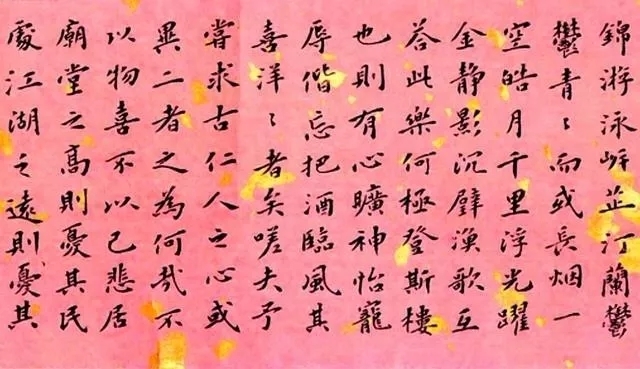 錦游泳岸芷汀蘭鬱
鬱青々而或長烟一
空皓月千里浮光躍
金静影沉璧漁歌互
答此樂何極登斯樓
也則有心曠神怡寵
辱偕忘把酒臨風其
喜洋々者矣嗟夫予
嘗求古仁人之心或
異二者之為何哉不
以物喜不以己悲居
廟堂之高則憂其民
處江湖之遠則憂其